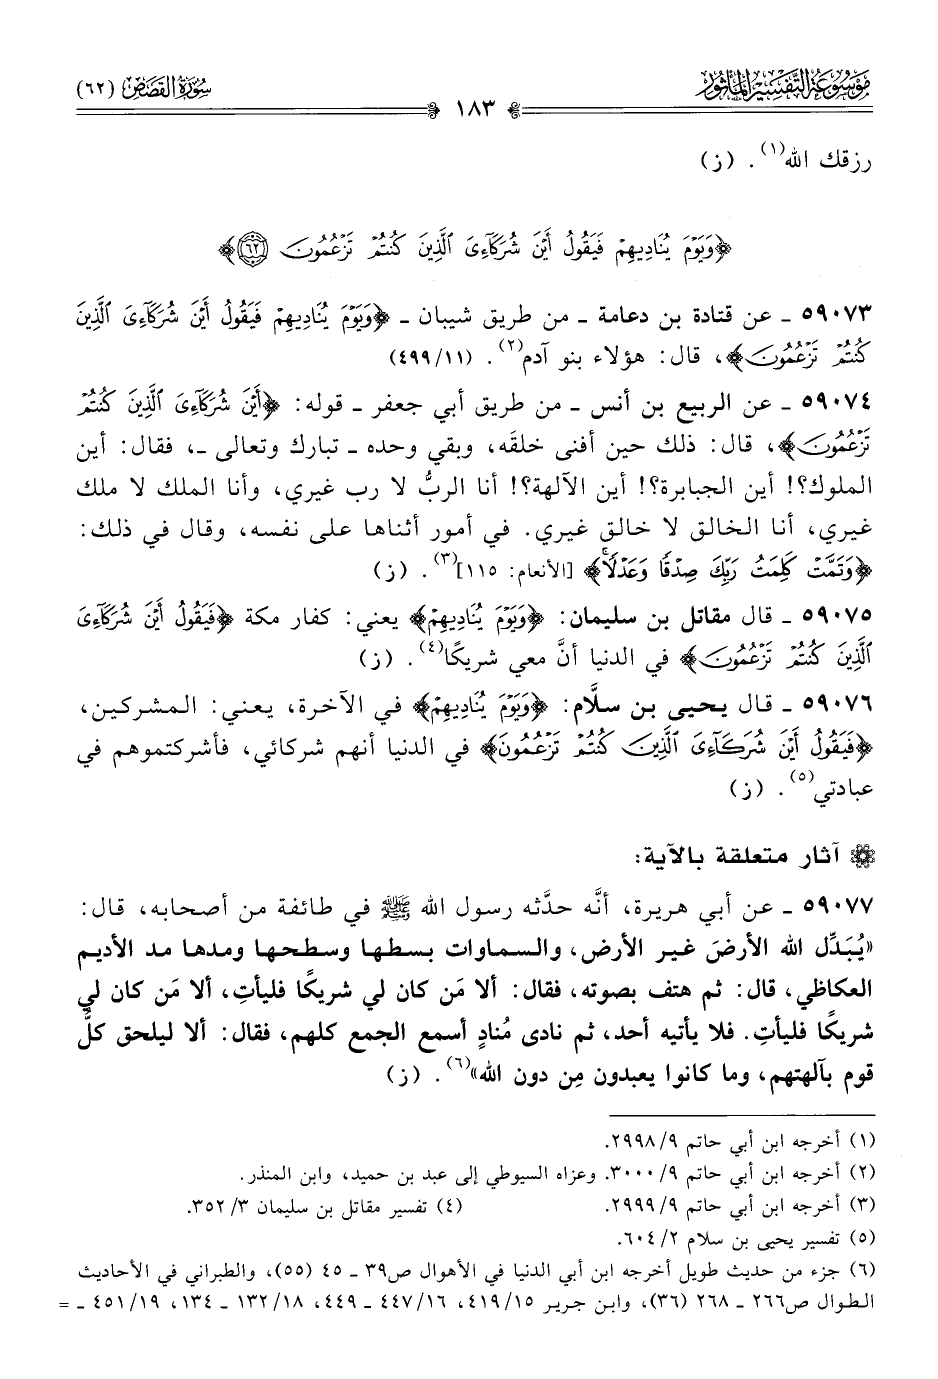 موسوعة التفسير المأثور
١٨٣
سورة القصص (٦٢)
رزقك الله(١). (ز)
﴿وَيَوْمَ يُنَادِيهِمْ فَيَقُولُ أَيْنَ شُرَكَآءِىَ ٱلَّذِينَ كُنتُمْ تَزْعُمُونَ ٦٢﴾
٥٩٠٧٣ ـ عن قتادة بن دعامة ـ من طريق شيبان ـ ﴿وَيَوْمَ يُنَادِيهِمْ فَيَقُولُ أَيْنَ شُرَكَآءِىَ ٱلَّذِينَ
كُنتُمْ تَزْعُمُونَ﴾، قال: هؤلاء بنو آدم(٢). (٤٩٩/١١)
٥٩٠٧٤ ـ عن الربيع بن أنس ـ من طريق أبي جعفر ـ قوله: ﴿أَيْنَ شُرَكَآءِىَ ٱلَّذِينَ كُنتُمْ
تَزْعُمُونَ﴾، قال: ذلك حين أفنى خلقَه، وبقي وحده ـ تبارك وتعالى ـ، فقال: أين
الملوك؟! أين الجبابرة؟! أين الآلهة؟! أنا الربُّ لا رب غيري، وأنا الملك لا ملك
غيري، أنا الخالق لا خالق غيري. في أمور أثناها على نفسه، وقال في ذلك:
﴿وَتَمَّتْ كَلِمَتُ رَبِّكَ صِدْقًا وَعَدْلًاۚ﴾ [الأنعام: ١١٥](٣). (ز)
٥٩٠٧٥ ـ قال مقاتل بن سليمان: ﴿وَيَوْمَ يُنَادِيهِمْ﴾ يعني: كفار مكة ﴿فَيَقُولُ أَيْنَ شُرَكَآءِىَ
ٱلَّذِينَ كُنتُمْ تَزْعُمُونَ﴾ في الدنيا أنَّ معي شريكًا(٤). (ز)
٥٩٠٧٦ ـ قال يحيى بن سلَّام: ﴿وَيَوْمَ يُنَادِيهِمْ﴾ في الآخرة، يعني: المشركين،
﴿فَيَقُولُ أَيْنَ شُرَكَآءِىَ ٱلَّذِينَ كُنتُمْ تَزْعُمُونَ﴾ في الدنيا أنهم شركائي، فأشركتموهم في
عبادتي(٥). (ز)
آثار متعلقة بالآية:
٥٩٠٧٧ ـ عن أبي هريرة، أنَّه حدَّثه رسول الله ﷺ في طائفة من أصحابه، قال:
«يُبَدِّل الله الأرضَ غير الأرض، والسماوات بسطها وسطحها ومدها مد الأديم
العكاظي، قال: ثم هتف بصوته، فقال: ألا مَن كان لي شريكًا فليأتِ، ألا مَن كان لي
شريكًا فليأتِ. فلا يأتيه أحد، ثم نادى مُنادٍ أسمع الجمع كلهم، فقال: ألا ليلحق كلُّ
قوم بآلهتهم، وما كانوا يعبدون مِن دون الله»(٦). (ز)
(١) أخرجه ابن أبي حاتم ٩/ ٢٩٩٨.
(٢) أخرجه ابن أبي حاتم ٩/ ٣٠٠٠. وعزاه السيوطي إلى عبد بن حميد، وابن المنذر.
(٣) أخرجه ابن أبي حاتم ٩/ ٢٩٩٩. (٤) تفسير مقاتل بن سليمان ٣/ ٣٥٢.
(٥) تفسير يحيى بن سلام ٢/ ٦٠٤.
(٦) جزء من حديث طويل أخرجه ابن أبي الدنيا في الأهوال ص٣٩ ـ ٤٥ (٥٥)، والطبراني في الأحاديث
الطوال ص٢٦٦ ـ ٢٦٨ (٣٦)، وابن جرير ٤١٩/١٥، ٤٤٧/١٦ ـ ٤٤٩، ١٣٢/١٨ ـ ١٣٤، ٤٥١/١٩ ـ =